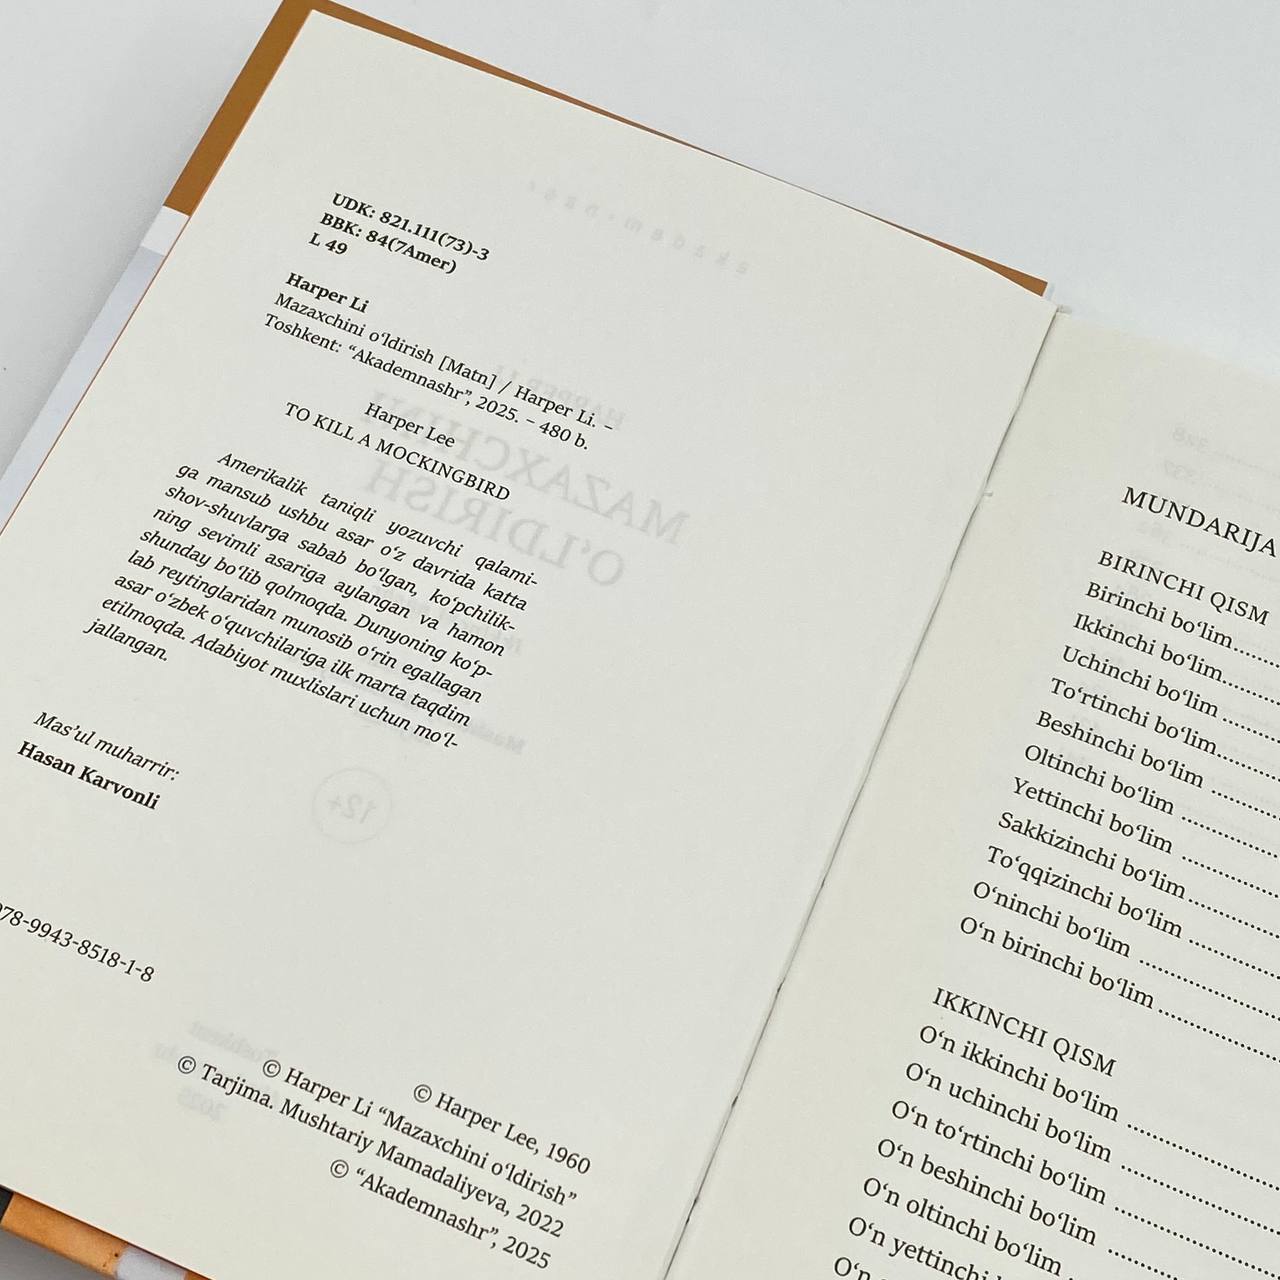 UDK: 821.111(73)-3
BBK: 84(7Amer)
L 49
Harper Li
Mazaxchini o‘ldirish [Matn] / Harper Li. –
Toshkent: “Akademnashr”, 2025. – 480 b.
Harper Lee
TO KILL A MOCKINGBIRD
Amerikalik taniqli yozuvchi qalami-
ga mansub ushbu asar o‘z davrida katta
shov-shuvlarga sabab bo‘lgan, ko‘pchilik-
ning sevimli asariga aylangan va hamon
shunday bo‘lib qolmoqda. Dunyoning ko‘p-
lab reytinglaridan munosib o‘rin egallagan
asar o‘zbek o‘quvchilariga ilk marta taqdim
etilmoqda. Adabiyot muxlislari uchun mo‘l-
jallangan.
Mas’ul muharrir:
Hasan Karvonli
978-9943-8518-1-8
© Harper Lee, 1960
© Harper Li “Mazaxchini o‘ldirish”
© Tarjima. Mushtariy Mamadaliyeva, 2022
© “Akademnashr”, 2025
MUNDARIJA
BIRINCHI QISM
Birinchi bo‘lim
Ikkinchi bo‘lim
Uchinchi bo‘lim
To‘rtinchi bo‘lim
Beshinchi bo‘lim
Oltinchi bo‘lim
Yettinchi bo‘lim
Sakkizinchi bo‘lim
To‘qqizinchi bo‘lim
O‘ninchi bo‘lim
O‘n birinchi bo‘lim
IKKINCHI QISM
O‘n ikkinchi bo‘lim
O‘n uchinchi bo‘lim
O‘n to‘rtinchi bo‘lim
O‘n beshinchi bo‘lim
O‘n oltinchi bo‘lim
O‘n yettinchi bo‘lim
O‘n